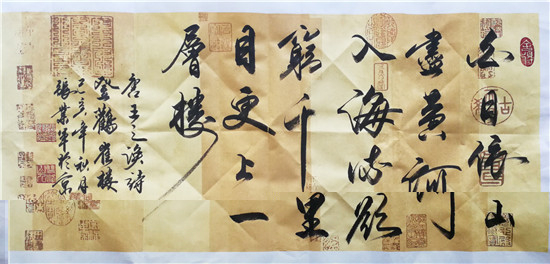 白日依山
盡黃河
入海流欲
窮千里
目更上一
層樓
唐王之渙詩
登鶴雀樓
己亥年秋月
張業軍於京